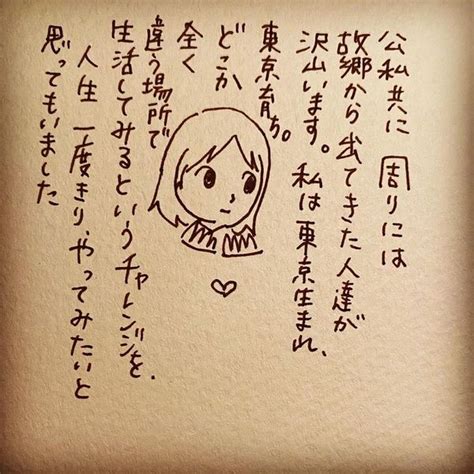 公私共に 周りには
故郷から出てきた人達が
沢山います。私は東京生まれ、
東京育ち。
どこか
全く
違う場所で
生活してみるというチャレンジを、
人生一度きり、やってみたいと
思ってもいました